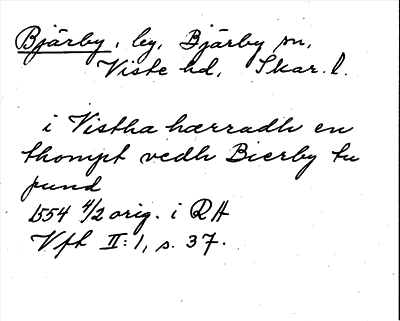 Bjärby, by, Bjärby sn,
Viste hd, Skar. l.
i Vistha hærradh en
thompt vedh Bierby tu
pund
1554 4/2 orig. i RA
Vfh II:1, s. 37.